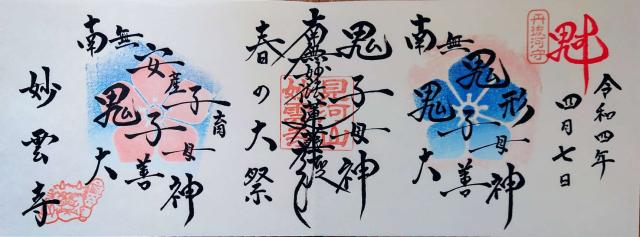 魁
令和四年
四月七日
南無
鬼形
鬼子母
大善神
鬼子母神
南無妙法蓮華経
春の大祭
南無
安産子育
鬼子母
大善神
妙雲寺